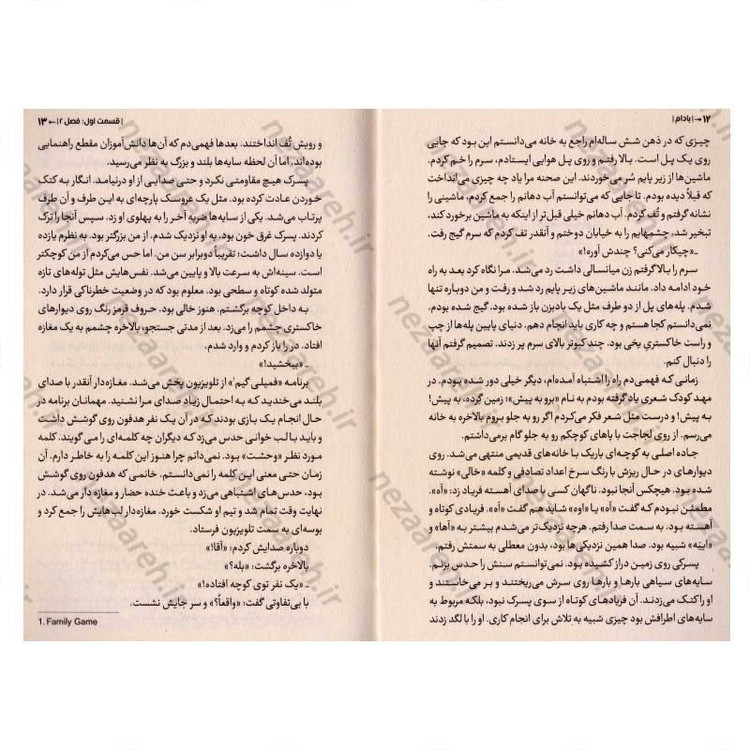 ۱۲ → | بادام |
چیزی که در ذهن شش ساله‌ام راجع به خانه می‌دانستم این بود که جایی
روی یک پل است. بالا رفتم و روی پل هوایی ایستادم، سرم را خم کردم.
ماشین‌ها از زیر پایم سُر می‌خوردند. این صحنه مرا یاد چه چیزی می‌انداخت
که قبلاً دیده بودم. تا جایی که می‌توانستم آب دهانم را جمع کردم، ماشینی را
نشانه گرفتم و تُف کردم. آب دهانم خیلی قبل‌تر از اینکه به ماشین برخورد کند،
تبخیر شد، چشمهایم را به خیابان دوختم و آنقدر تف کردم که سرم گیج رفت.
ـ «چیکار می‌کنی؟ چندش آوره!»
سرم را بالا گرفتم زن میانسالی داشت رد می‌شد. مرا نگاه کرد بعد به راه
خود ادامه داد. مانند ماشین‌های زیر پایم رد شد و رفت و من دوباره تنها
شدم. پله‌های پل از دو طرف مثل یک بادبزن باز شده بود. گیج شده بودم.
نمی‌دانستم کجا هستم و چه کاری باید انجام دهم. دنیای پایین پله‌ها از چپ
و راست خاکستریِ یخی بود. چند کبوتر بالای سرم پر زدند. تصمیم گرفتم آنها
را دنبال کنم.
زمانی که فهمیدم راه را اشتباه آمده‌ام، دیگر خیلی دور شده بودم. در
مهد کودک شعری یاد گرفته بودم به نام «برو به پیش!»؛ زمین گرده، به پیش!
به پیش! و درست مثل شعر فکر می‌کردم اگر رو به جلو بروم بالاخره به خانه
می‌رسم. از روی لجاجت با پاهای کوچکم رو به جلو گام برمی‌داشتم.
جاده اصلی به کوچه‌ای باریک با خانه‌های قدیمی منتهی می‌شد. روی
دیوارهای در حال ریزش با رنگ سرخ اعداد تصادفی و کلمه «خالی» نوشته
شده بود. هیچکس آنجا نبود. ناگهان کسی با صدای آهسته فریاد زد: «آه».
مطمئن نبودم که گفت «آه» یا «اوه» شاید هم گفت «آه». فریادی کوتاه و
آهسته بود. به سمت صدا رفتم. هرچه نزدیک‌تر می‌شدم بیشتر به «آها» و
شبیه بود. صدا همین نزدیکی‌ها بود، بدون معطلی به سمتش رفتم.
پسرکی روی زمین دراز کشیده بود. نمی‌توانستم سنش را حدس بزنم.
سایه‌های سیاهی بارها و بارها روی سرش می‌ریختند و بر می‌خاستند و
او را کتک می‌زدند. آن فریادهای کوتاه از سوی پسرک نبود، بلکه مربوط به
سایه‌های اطرافش بود چیزی شبیه به تلاش برای انجام کاری. او را با لگد زدند
| قسمت اول: فصل ۲ | ← ۱۳
و رویش تُف انداختند. بعدها فهمی‌دم که آن‌ها دانش‌آموزان مقطع راهنمایی
بوده‌اند، اما آن لحظه سایه‌ها بلند و بزرگ به نظر می‌رسید.
پسرک هیچ مقاومتی نکرد و حتی صدایی از او درنیامد. انگار به کتک
خوردن عادت کرده بود. مثل یک عروسک پارچه‌ای به این طرف و آن طرف
پرتاب می‌شد. یکی از سایه‌ها ضربه آخر را به پهلوی او زد. سپس آنجا را ترک
کردند. پسرک غرق خون بود، به او نزدیک شدم. از من بزرگتر بود. به نظرم یازده
یا دوازده سال داشت؛ تقریباً دوبرابر سن من. اما حس می‌کردم از من کوچکتر
است. سینه‌اش به سرعت بالا و پایین می‌شد. نفس‌هایش مثل توله‌های تازه
متولد شده کوتاه و سطحی بود. معلوم بود که در وضعیت خطرناکی قرار دارد.
به داخل کوچه برگشتم. هنوز خالی بود. حروف قرمز رنگ روی دیوارهای
خاکستری چشمم را می‌زد. بعد از مدتی جستجو، بالاخره چشمم به یک مغازه
افتاد. در را باز کردم و وارد شدم.
ـ «ببخشید!»
برنامه «فمیلی گیم¹» از تلویزیون پخش می‌شد. مغازه‌دار آنقدر با صدای
بلند می‌خندید که به احتمال زیاد صدای مرا نشنید. مهمانان برنامه در
حال انجام یک بازی بودند که در آن یک نفر هدفون روی گوشش داشت
و باید با لب خوانی حدس می‌زد که دیگران چه کلمه‌ای را می‌گویند. کلمه
مورد نظر «وحشت» بود. نمی‌دانم چرا هنوز این کلمه را به خاطر دارم. آن
زمان حتی معنی این کلمه را نمی‌دانستم. خانمی که هدفون روی گوشش
بود، حدس‌های اشتباهی می‌زد و باعث خنده حضار و مغازه دار می‌شد. در
نهایت وقت تمام شد و تیم او شکست خورد. مغازه‌دار لب‌هایش را جمع کرد و
بوسه‌ای به سمت تلویزیون فرستاد.
دوباره صدایش کردم: «آقا!»
بالاخره برگشت: «بله؟»
ـ «یک نفر توی کوچه افتاده!»
با بی‌تفاوتی گفت: «واقعاً؟» و سر جایش نشست.
1. Family Game
nezaareh.ir